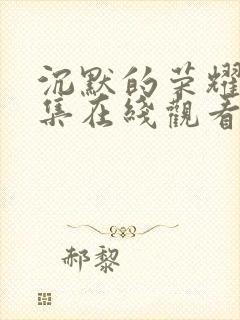 沉默的荣耀
集在綫觀看
郝黎